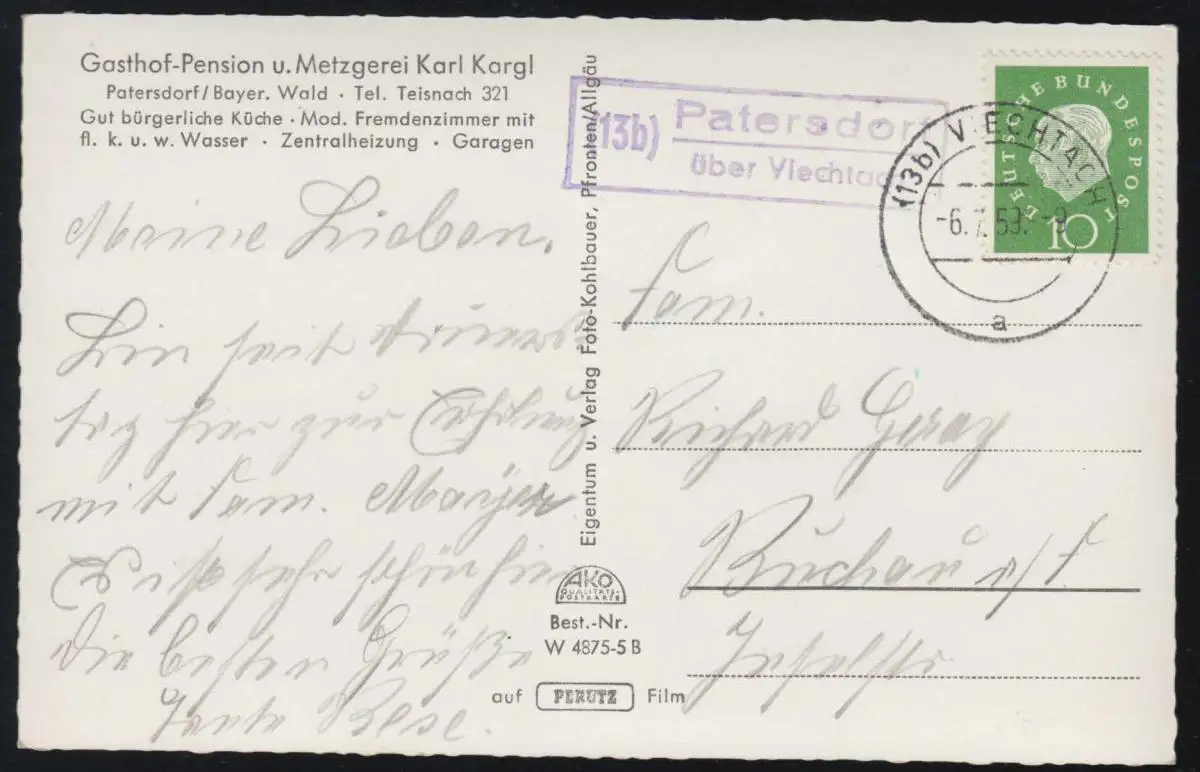 Gasthof-Pension u. Metzgerei Karl Kargl
Patersdorf/Bayer. Wald · Tel. Teisnach 321
Gut bürgerliche Küche · Mod. Fremdenzimmer mit
fl. k. u. w. Wasser · Zentralheizung · Garagen
Meine Lieben.
Bin seit Donners-
tag hier zur Erholung
mit Fam. Mayer
Es ist sehr schön hier
Die besten Grüße
Tante Rese.
Eigentum u. Verlag Foto-Kohlbauer, Pfronten/Allgäu
AKO
QUALITÄTS-
POSTKARTE
Best.-Nr.
W 4875-5 B
auf PERUTZ Film
(13b) Patersdorf
über Viechtach
(13b) VIECHTACH
-6.7.59.-9
a
DEUTSCHE BUNDESPOST
10
Fam.
Richard
Buchau a/F
Inselstr.